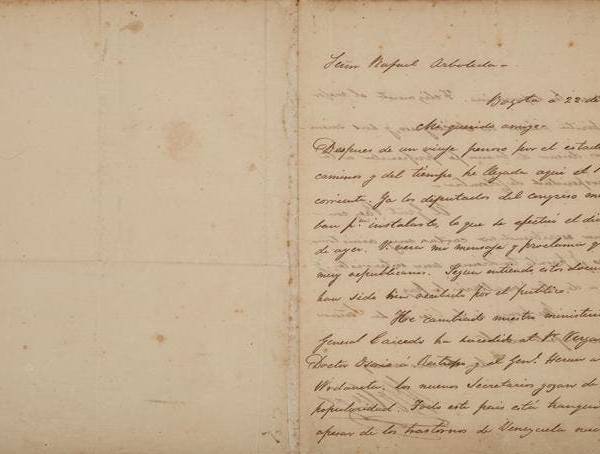 Señor Rafael Arboleda
Bogotá a 22 de
Mi querido amigo
Despues de un viaje penoso por el estado
caminos y del tiempo, he llegado aquí el 1
corriente. Ya los diputados del congreso
ban pª instalarlo, lo que se efectuó el dia
de ayer. V. verá mi mensaje y proclama
muy republicanos. Segun entiendo estos docu
han sido bien recibido por el publico.
He cambiado nuestro ministeri
General Caicedo ha sucedido al Sr. Verga
Doctor Osorio á Restrepo y al Genl. Herran a
Urdaneta, los nuevos Secretarios gozan de
popularidad. Todo este pais está tranqui
apesar de los trastornos de Venezuela